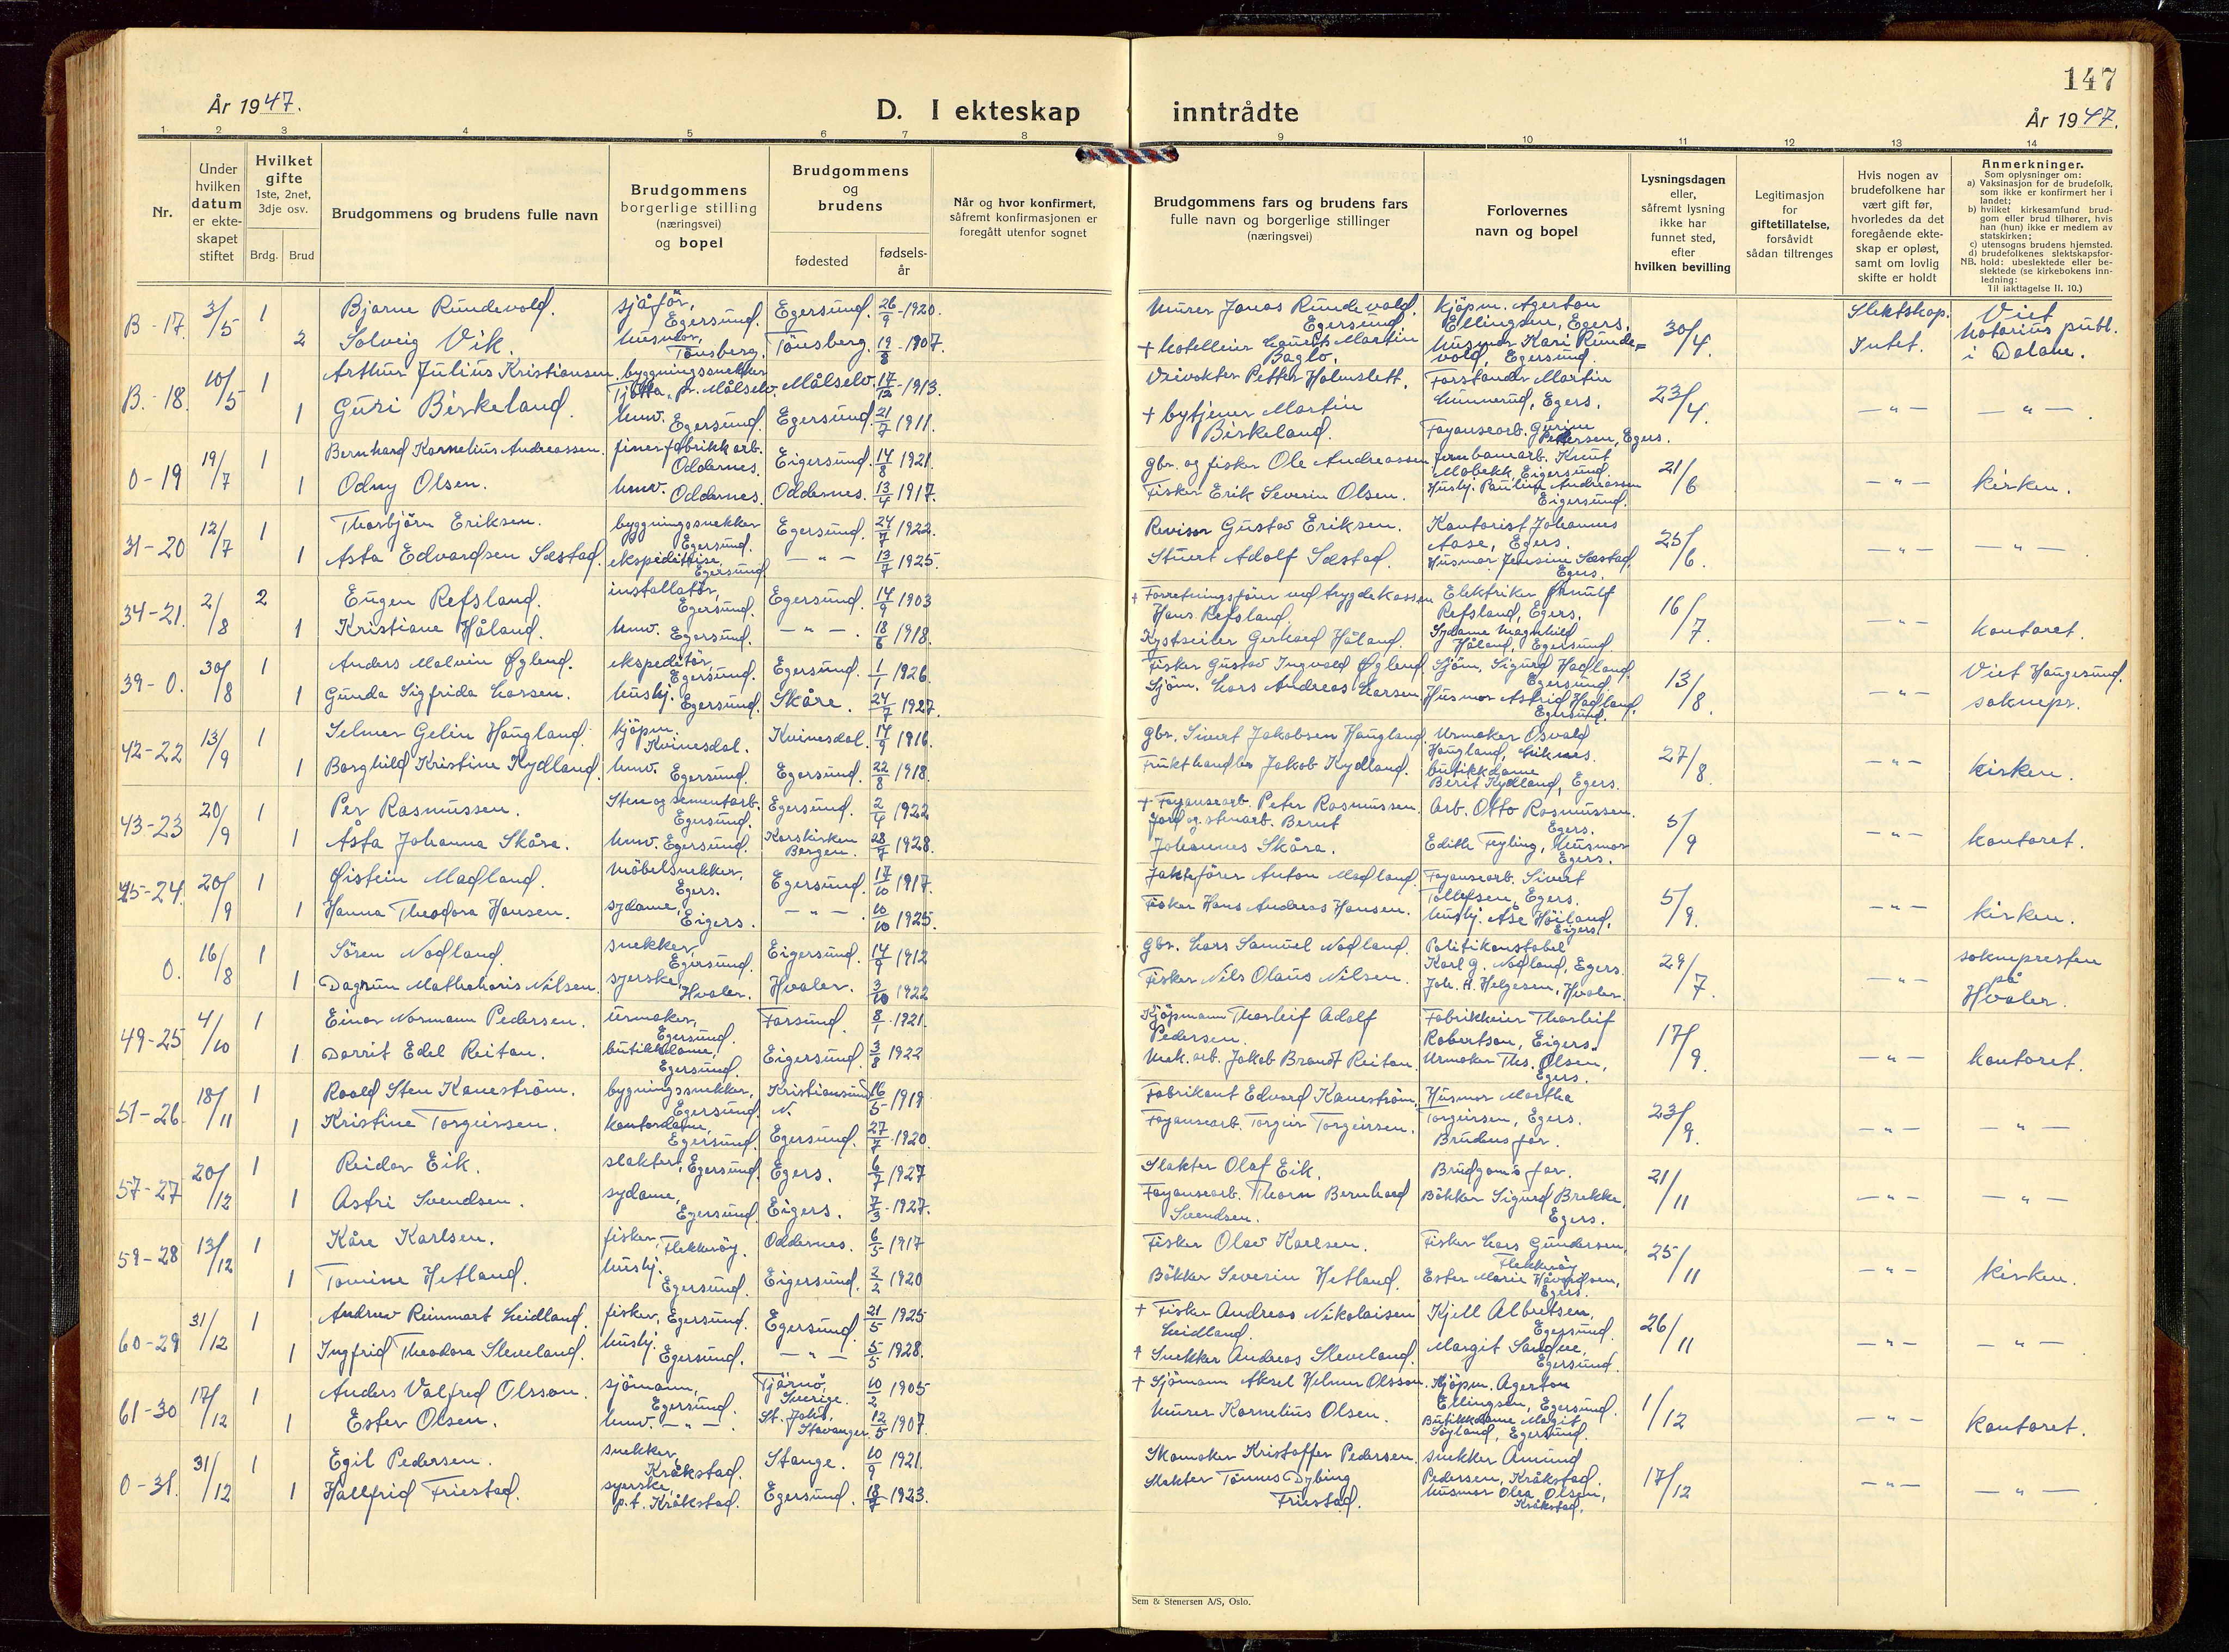 147
År 1947.
D. I ekteskap inntrådte
År 1947.
1 2 3 4 5 6 7 8 9 10 11 12 13 14
Nr.
Under hvilken datum er ekteskapet stiftet
Hvilket gifte
1ste, 2net, 3dje osv.
Brdg. Brud
Brudgommens og brudens fulle navn
Brudgommens borgerlige stilling (næringsvei) og bopel
Brudgommens og brudens
fødested
fødselsår
Når og hvor konfirmert, såfremt konfirmasjonen er foregått utenfor sognet
Brudgommens fars og brudens fars fulle navn og borgerlige stillinger (næringsvei)
Forlovernes navn og bopel
Lysningsdagen eller, såfremt lysning ikke har funnet sted, efter hvilken bevilling
Legitimasjon for giftetillatelse, forsåvidt sådan tiltrenges
Hvis nogen av brudefolkene har vært gift før, hvorledes da det foregående ekteskap er opløst, samt om lovlig skifte er holdt
Anmerkninger.
Som oplysninger om:
a) Vaksinasjon for de brudefolk, som ikke er konfirmert her i landet;
b) hvilket kirkesamfund brudgom eller brud tilhører, hvis han (hun) ikke er medlem av statskirken;
c) utensogns brudens hjemsted.
d) brudefolkenes slektskapsforhold: ubeslektede eller beslektede (se kirkebokens innledning:
NB.
Til iakttagelse II. 10.)
B-17. 3/5 1 Bjarne Rundevold. sjåfør, Egersund. Egersund. 26/9-1920. Murer Jonas Rundevold. Egersund kjöpm. Agerton Ellingsen, Egers. 30/4. Slektskap. Viet
2 Solveig Vik. husmor, Tönsberg. Tönsberg. 19/8-1907. + hotelleier Laurits Martin Baglo. Husmor Kari Rundevold, Egersund. Intet. Notarius publ. i Dalane.
B.-18. 10/5 1 Arthur Julius Kristiansen. byggningssnekker Tjötta, pr. Målselv. Målselv. 17/12-1913. Veivokter Petter Holmslett. Forstander Martin Gunnerud, Egers. 23/4. — " — — " —.
1 Guri Birkeland. hmv. Egersund. Egersund. 21/7 1911. + bytjener Martin Birkeland. Fayansearb. Gurine Pedersen, Egers.
0-19 19/7 1 Bernhard Kornelius Andreassen. finerfabrikkarb. Oddernes. Eigersund. 14/8 1921. Gbr. og fisker Ole Andreassen Jernbanearb. Knut Mobekk, Eigersund. 21/6 — " — kirken.
1 Odny Olsen. hmv. Oddernes. Oddernes. 13/4 1917. Fisker Erik Severin Olsen. Hushj. Pauline Andreassen Eigersund.
31-20 12/7 1 Thorbjörn Eriksen. byggningssnekker Egersund. Egersund. 24/7 1922. Revisor Gustav Eriksen. Kontorist Johannes Aase, Egers. 25/6. — " — — " —.
1 Asta Edvardsen Sæstad. ekspeditrise, Egersund — " — 13/7 1925. Stuert Adolf Sæstad. Husmor Jensine Sæstad, Egers.
34-21. 2/8 2 Eugen Refsland. installatör, Egersund. Egersund. 14/9 1903 + Forretningsförer ved trygdekassen Hans Refsland. Elektriker Arnulf Refsland, Egers. 16/7. — " — kontoret.
1 Kristiane Håland. hmv. Egersund. — " —. 18/6 1918. Kystseiler Gerhard Håland. Sydame Magnhild Håland, Egersund.
39-0. 30/8 1 Anders Malvin Øglend. ekspeditör, Egersund. Egersund. 1/1 1926. Fisker Gustav Ingvald Øglend. Sjöm. Sigurd Hadland. Egersund. 13/8. — " — Viet Haugesund.
1 Gunda Sigfrida Larsen. hushj. Egersund. Skåre. 24/7 1927. Sjöm. Lars Andreas Larsen Husmor Astrid Hadland. Egersund. soknepr.
42-22 13/9 1 Selmer Gelin Haugland. kjöpm. Kvinesdal. Kvinesdal. 14/9 1916. Gbr. Sivert Jakobsen Haugland. Urmaker Osvald Haugland, Liknes. 27/8. — " — kirken.
1 Borghild Kristine Kydland. hmv. Egersund. Egersund. 22/8 1918. Frukthandler Jakob Kydland. butikkdame Berit Kydland, Egers.
43-23 20/9 1 Per Rasmussen. Sten og sementarb. Egersund. Egersund. 2/4 1922 + Fayansearb. Peter Rasmussen. Arb. Otto Rasmussen. Egers. 5/9 — " — kontoret.
1 Åsta Johanna Skåra. hmv. Egersund. Korskirken Bergen. 28/7 1928. Jord og stenarb. Bernt Johannes Skåra. Edith Fryling, Husmor Egers.
45-24. 20/9 1 Øistein Madland. möbelsnekker, Egers. Egersund. 17/10 1917. Jaktförer Anton Madland. Fayansearb. Sivert Tollefsen, Egers. 5/9. — " — kirken.
1 Hanna Theodora Hansen. sydame, Eigers. — " —. 10/10 1925. Fisker Hans Andreas Hansen. hushj. Åse Höiland, Eigers.
0. 16/8 1 Sören Nodland. snekker, Egersund. Eigersund. 14/9 1912 Gbr. Lars Samuel Nodland. Politikonstabel Karl G. Nodland, Egers. 29/7. — " — soknepresten på Hvaler.
1 Dagrun Mathohoris Nilsen. syerske, Hvaler. Hvaler. 3/10 1922 Fisker Nils Olaus Nilsen. Joh. A. Helgesen, Hvaler.
49-25 4/10 1 Einar Normann Pedersen. urmaker, Egersund. Farsund. 8/1 1921. Kjöpmann Thorleif Adolf Pedersen. Fabrikkeier Thorleif Robertson, Eigers. 17/9. — " — kontoret.
1 Dorrit Edel Reitan. butikkdame, Egersund. Eigersund. 3/8 1922 Mek. arb. Jakob Brandt Reitan. Urmaker Ths. Olsen, Egers.
51-26. 18/11 1 Roald Sten Kaneström. bygningssnekker, Egersund. Kristiansund N. 16/5-1919 Fabrikant Edvard Kaneström. Husmor Martha Torgeirsen, Egers. 23/9. — " — — " —
1 Kristine Torgeirsen. kontordame, Egersund. Egersund. 27/7-1920. Fayansearb. Torgeir Torgeirsen. Brudens far.
57-27 20/12 1 Reidar Eik. slakter, Egersund. Egers. 6/7 1927 Slakter Olaf Eik. Brudgom's far. 21/11 — " — — " —
1 Astri Svendsen. sydame, Egersund. Eigers. 7/3-1927. Fayansearb. Thorn Bernhard Svendsen. Bökker Sigurd Brekke, Egers.
59-28 13/12 1 Kåre Karlsen. fisker, Flekkeröy. Oddernes. 6/5 1917 Fisker Olav Karlsen. Fisker Lars Gundersen, Flekkeröy 25/11 — " — kirken.
1 Tomine Hetland. hushj. Egersund. Eigersund. 2/2 1920 Bökker Severin Hetland. Ester Marie Håvardsen, Egers.
60-29 31/12 1 Andrew Reinmart Leidland. fisker, Egersund. Egersund. 21/5 1925 + Fisker Andreas Nikolaisen Leidland. Kjell Albretsen, Egersund. 26/11 — " — — " —
1 Ingfrid Theodora Sleveland. hushj. Egersund. — " — 5/5 1928. + Snekker Andreas Sleveland. Margit Sandve, Egersund.
61-30 17/12 1 Anders Valfred Olsson. sjömann, Egersund. Tjärnö, Sverige. 10/2 1905 + Sjömann Aksel Helmer Olsson. Kjöpm. Agerton Ellingsen, Egersund. 1/12 — " — kontoret.
1 Ester Olsen. hmv. — " — St. Johs, Stavanger. 12/5 1907. Murer Kornelius Olsen. Butikkdame Margit Söyland, Egersund.
0-31. 31/12 1 Egil Pedersen. snekker, Kråkstad. Stange. 10/9 1921. Skomaker Kristoffer Pedersen. snekker Amund Pedersen, Kråkstad. 17/12 — " — — " —
1 Hallfrid Friestad. syerske, p.t. Kråkstad. Egersund. 18/7-1923. Slakter Tönnes Dybing Friestad. husmor Olea Olsen, Kråkstad.
Sem & Stenersen A/S, Oslo.